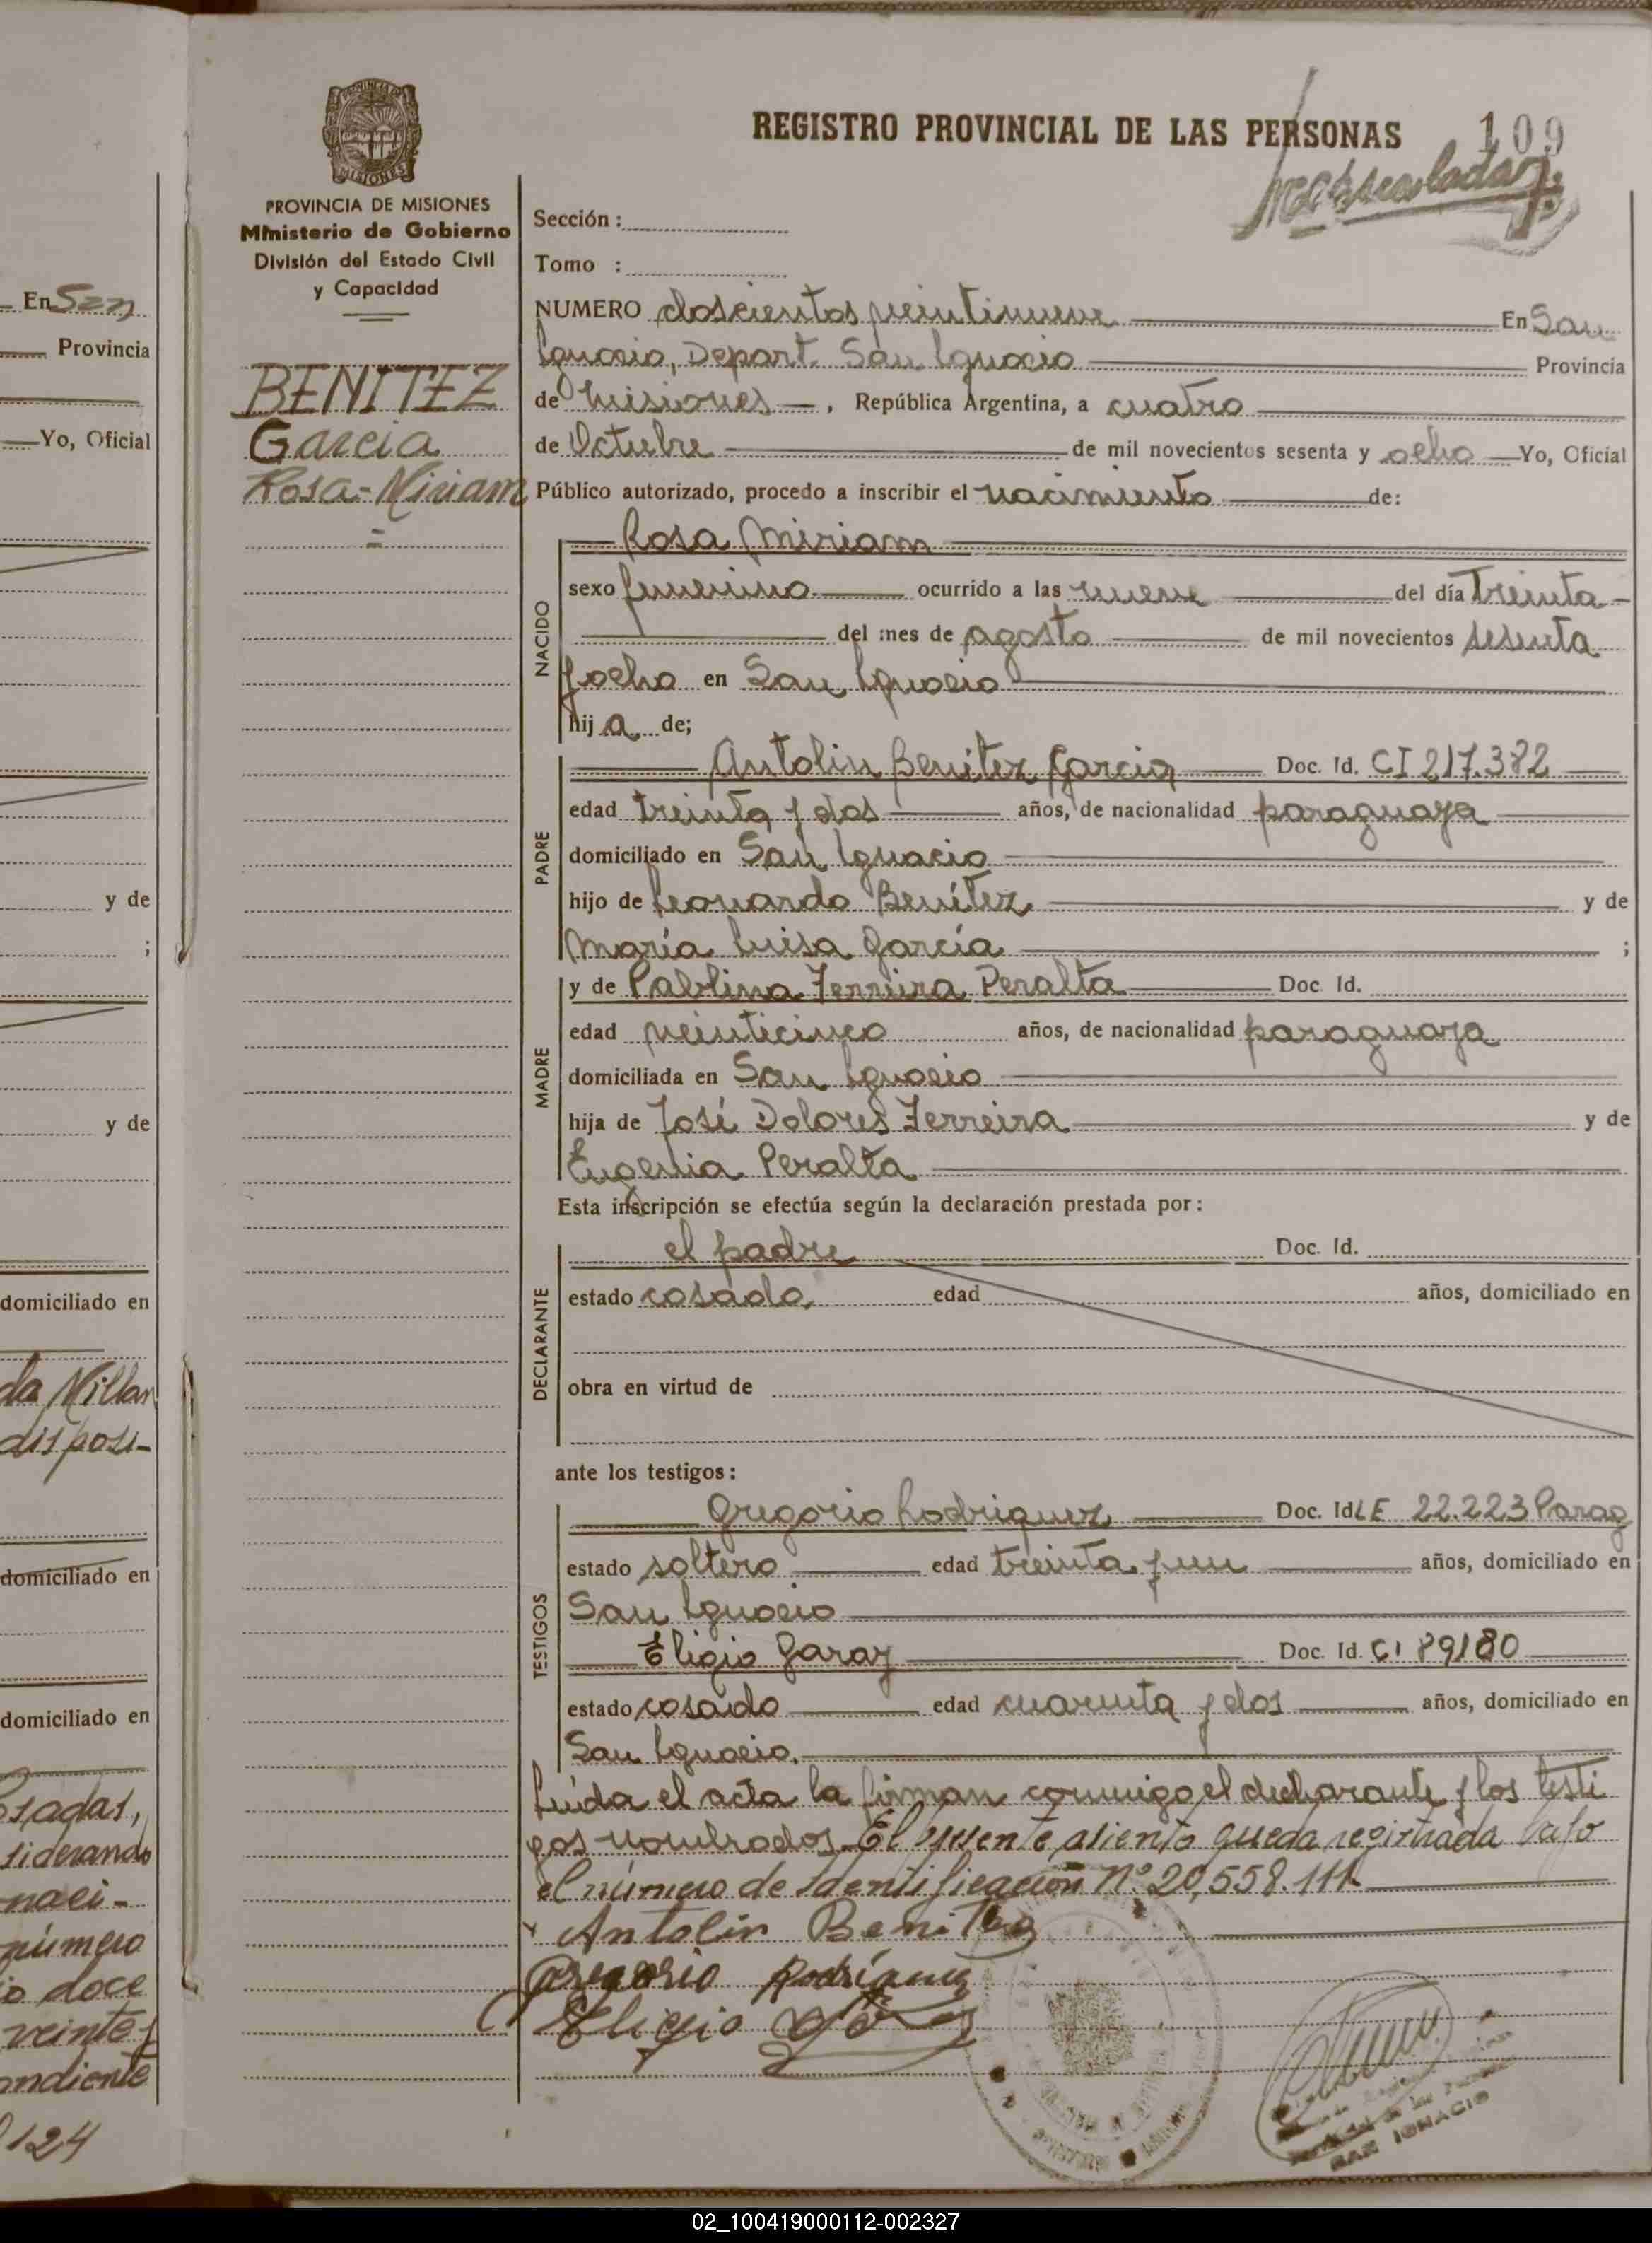 PROVINCIA DE MISIONES
Ministerio de Gobierno
División del Estado Civil
y Capacidad
BENITEZ
Garcia
Rosa-Miriam
=
REGISTRO PROVINCIAL DE LAS PERSONAS 109
Sección :
Tomo :
NUMERO doscientos veintinueve En San
Ignacio, Depart. San Ignacio Provincia
de Misiones — , República Argentina, a cuatro
de Octubre de mil novecientos sesenta y ocho — Yo, Oficial
Público autorizado, procedo a inscribir el nacimiento de:
NACIDO
Rosa Miriam
sexo femenino ocurrido a las nueve del día treinta
del mes de agosto de mil novecientos sesenta
y ocho en San Ignacio
hij a de;
PADRE
Antolin Benitez Garcia Doc. Id. CI 217.382
edad treinta y dos años, de nacionalidad paraguaya
domiciliado en San Ignacio
hijo de Leonardo Benítez y de
María Luisa García ;
MADRE
y de Pablina Ferreira Peralta Doc. Id.
edad veinticinco años, de nacionalidad paraguaya
domiciliada en San Ignacio
hija de José Dolores Ferreira y de
Eugenia Peralta
Esta inscripción se efectúa según la declaración prestada por:
DECLARANTE
el padre Doc. Id.
estado casado edad años, domiciliado en
obra en virtud de
ante los testigos:
TESTIGOS
Gregorio Rodriguez Doc. Id LE 22.223 Parag
estado soltero edad treinta y un años, domiciliado en
San Ignacio
Eligio Garay Doc. Id. CI 89180
estado casado edad cuarenta y dos años, domiciliado en
San Ignacio.
Leída el acta la firman conmigo el declarante y los testi
gos nombrados. El presente asiento queda registrada bajo
el número de Identificación Nº 20,558.111
Antolin Benitez
Gregorio Rodríguez
Eligio
SAN IGNACIO
En San
Provincia
Yo, Oficial
y de
;
y de
domiciliado en
da Millan
disposi-
domiciliado en
domiciliado en
sadas,
siderando
naci-
número
doce
veinte y
ondiente
124
02_100419000112-002327